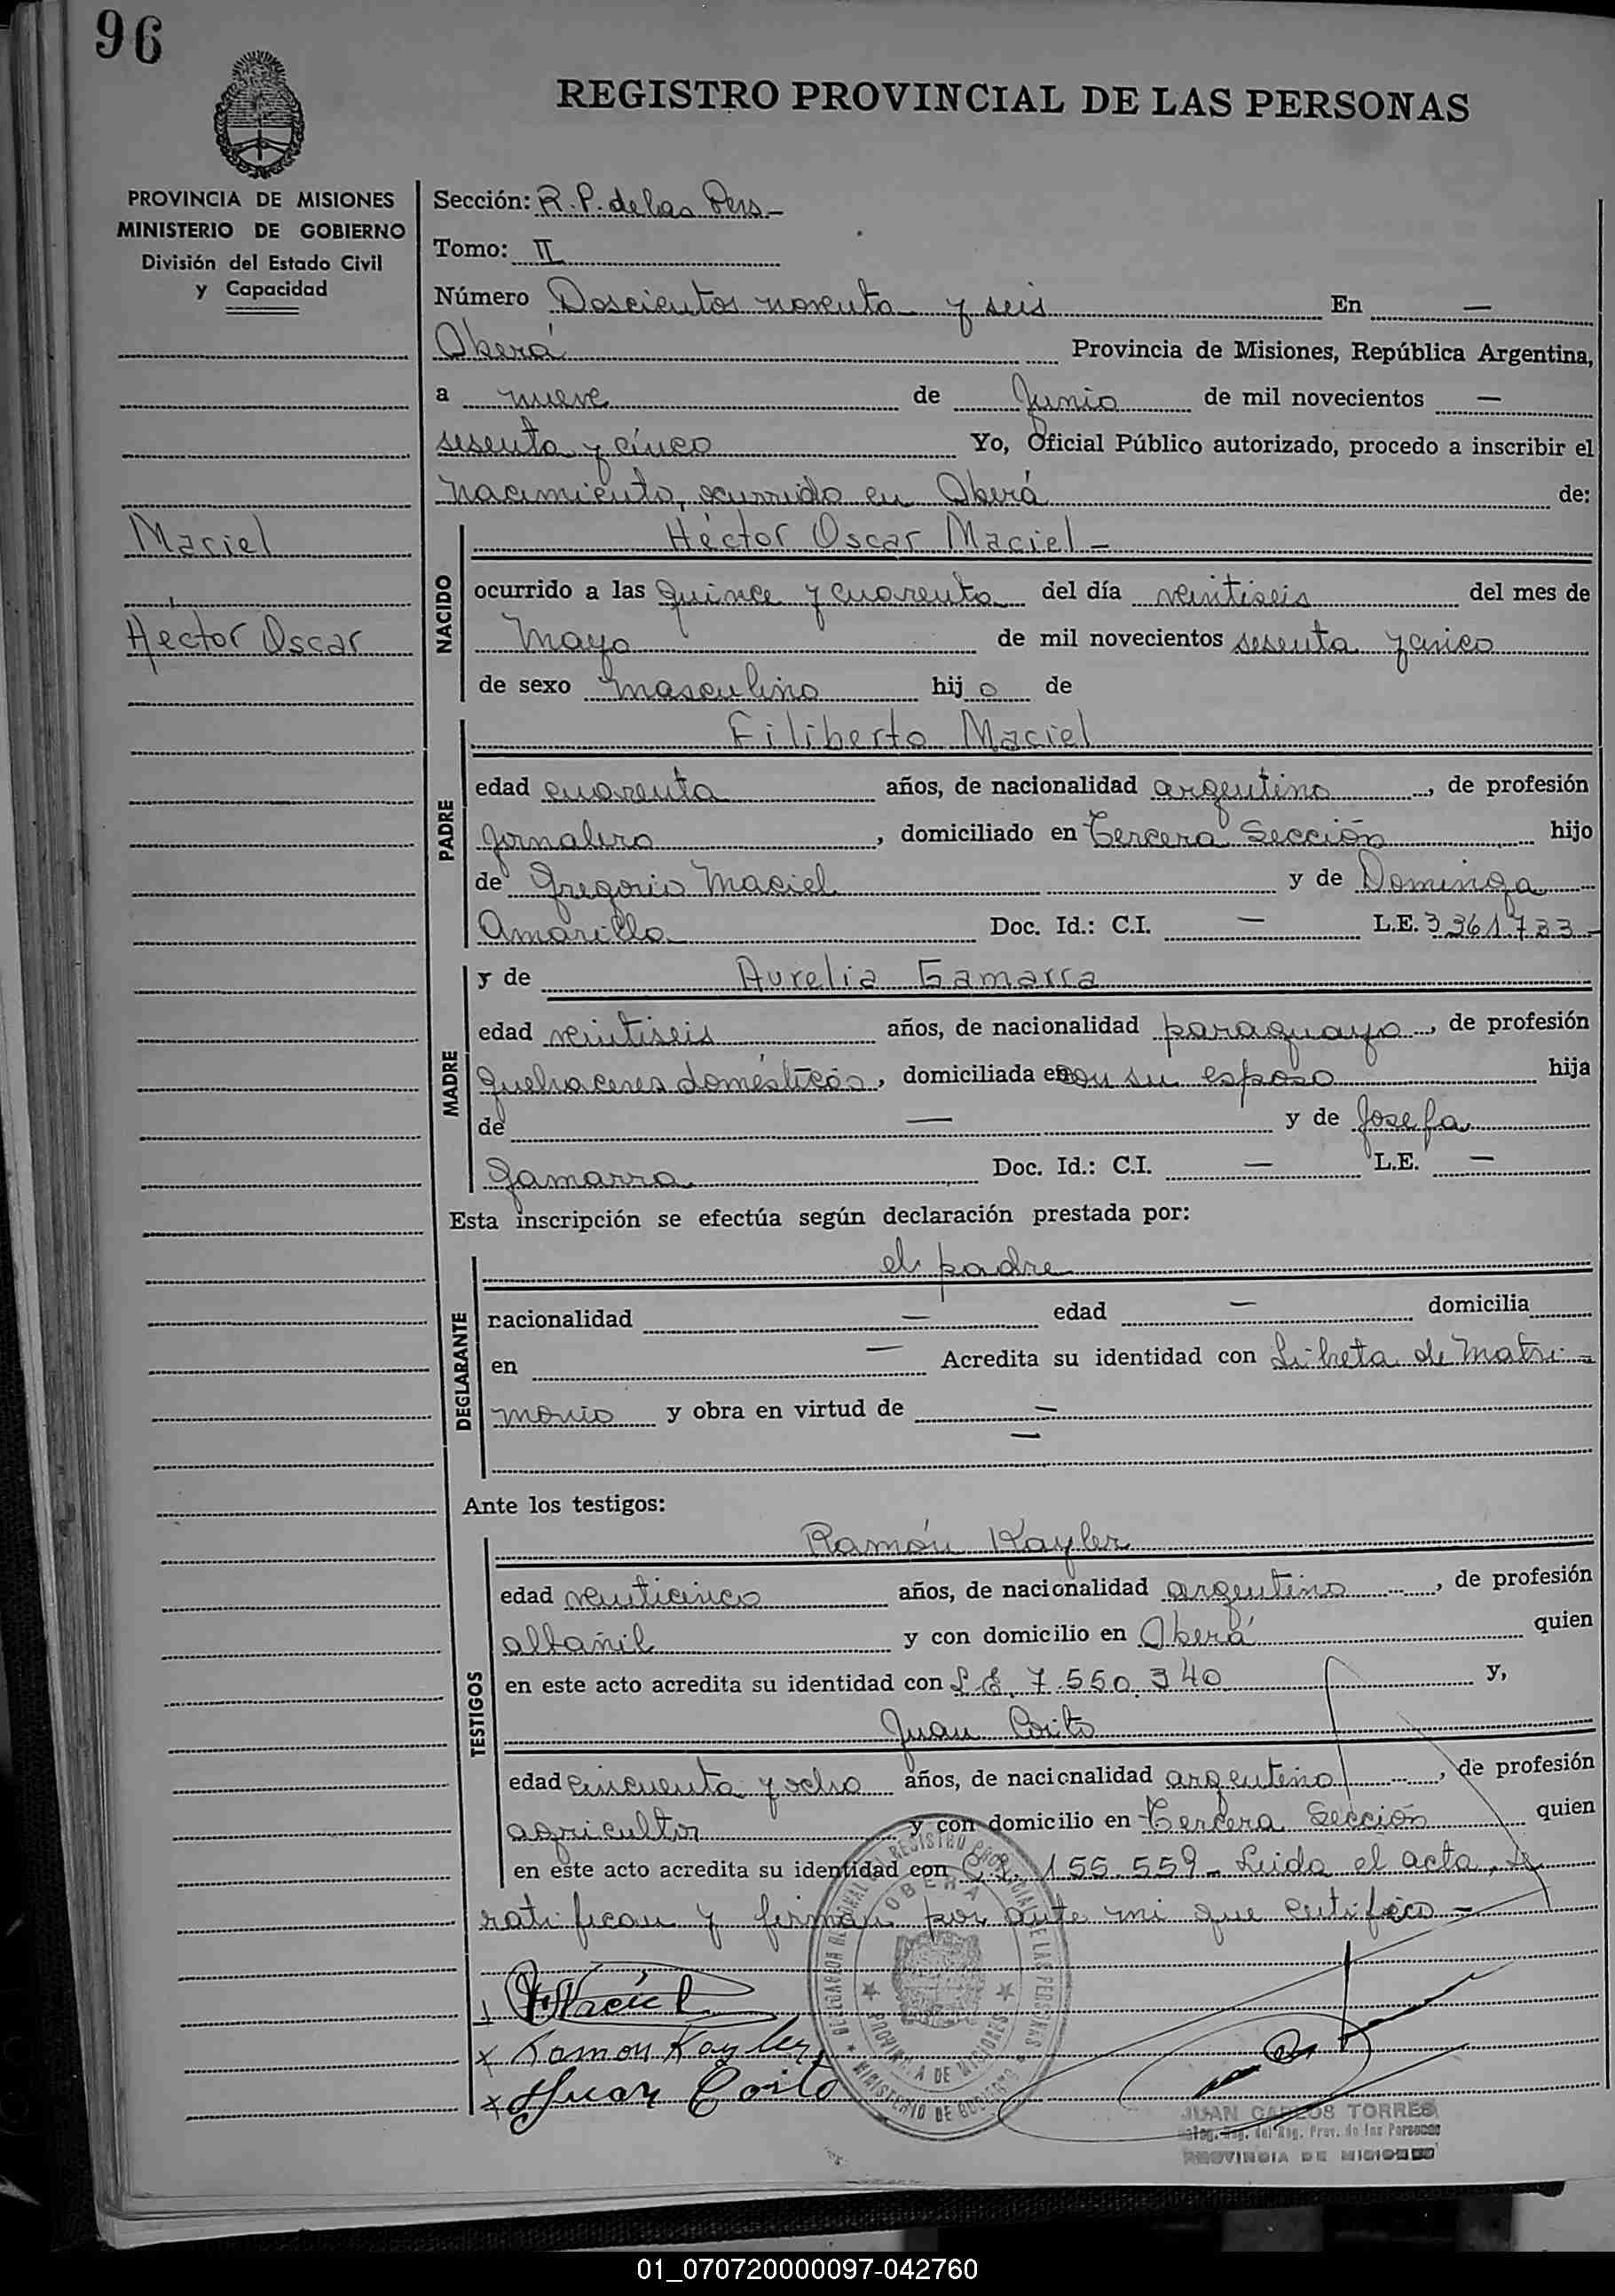 96
REGISTRO PROVINCIAL DE LAS PERSONAS
PROVINCIA DE MISIONES
MINISTERIO DE GOBIERNO
División del Estado Civil
y Capacidad
Maciel
Héctor Oscar
Sección: R. P. de las Pers -
Tomo: II
Número Doscientos noventa y seis En —
Oberá Provincia de Misiones, República Argentina,
a nueve de Junio de mil novecientos —
sesenta y cinco Yo, Oficial Público autorizado, procedo a inscribir el
nacimiento, ocurrido en Oberá de:
NACIDO
Héctor Oscar Maciel -
ocurrido a las quince y cuarenta del día veintiseis del mes de
Mayo de mil novecientos sesenta y cinco
de sexo masculino hij o de
PADRE
Filiberto Maciel
edad cuarenta años, de nacionalidad argentino, de profesión
jornalero, domiciliado en Tercera Sección hijo
de Gregorio Maciel y de Dominga
Amarilla Doc. Id.: C.I. — L.E. 3361733 -
MADRE
y de Aurelia Gamarra
edad veintiseis años, de nacionalidad paraguaya, de profesión
quehaceres domésticos, domiciliada en con su esposo hija
de — y de Josefa
Gamarra Doc. Id.: C.I. — L.E. —
Esta inscripción se efectúa según declaración prestada por:
DECLARANTE
el padre
nacionalidad — edad — domicilia
en — Acredita su identidad con Libreta de Matri-
monio y obra en virtud de —
—
Ante los testigos:
TESTIGOS
Ramón Kayler
edad veinticinco años, de nacionalidad argentino, de profesión
albañil y con domicilio en Oberá quien
en este acto acredita su identidad con L.E. 7.550.340 y,
Juan Coito
edad cincuenta y ocho años, de nacionalidad argentino, de profesión
agricultor y con domicilio en Tercera Sección quien
en este acto acredita su identidad con C.I. 155.559 - Leida el acta, la
ratifican y firman por ante mi que certifico -
Ramon Kayler
Juan Coito
DELEGACION REGIONAL DEL REGISTRO PROVINCIAL DE LAS PERSONAS
OBERA
PROVINCIA DE MISIONES
MINISTERIO DE GOBIERNO
JUAN CARLOS TORRES
Reg. del Reg. Prov. de las Personas
PROVINCIA DE MISIONES
01_070720000097-042760